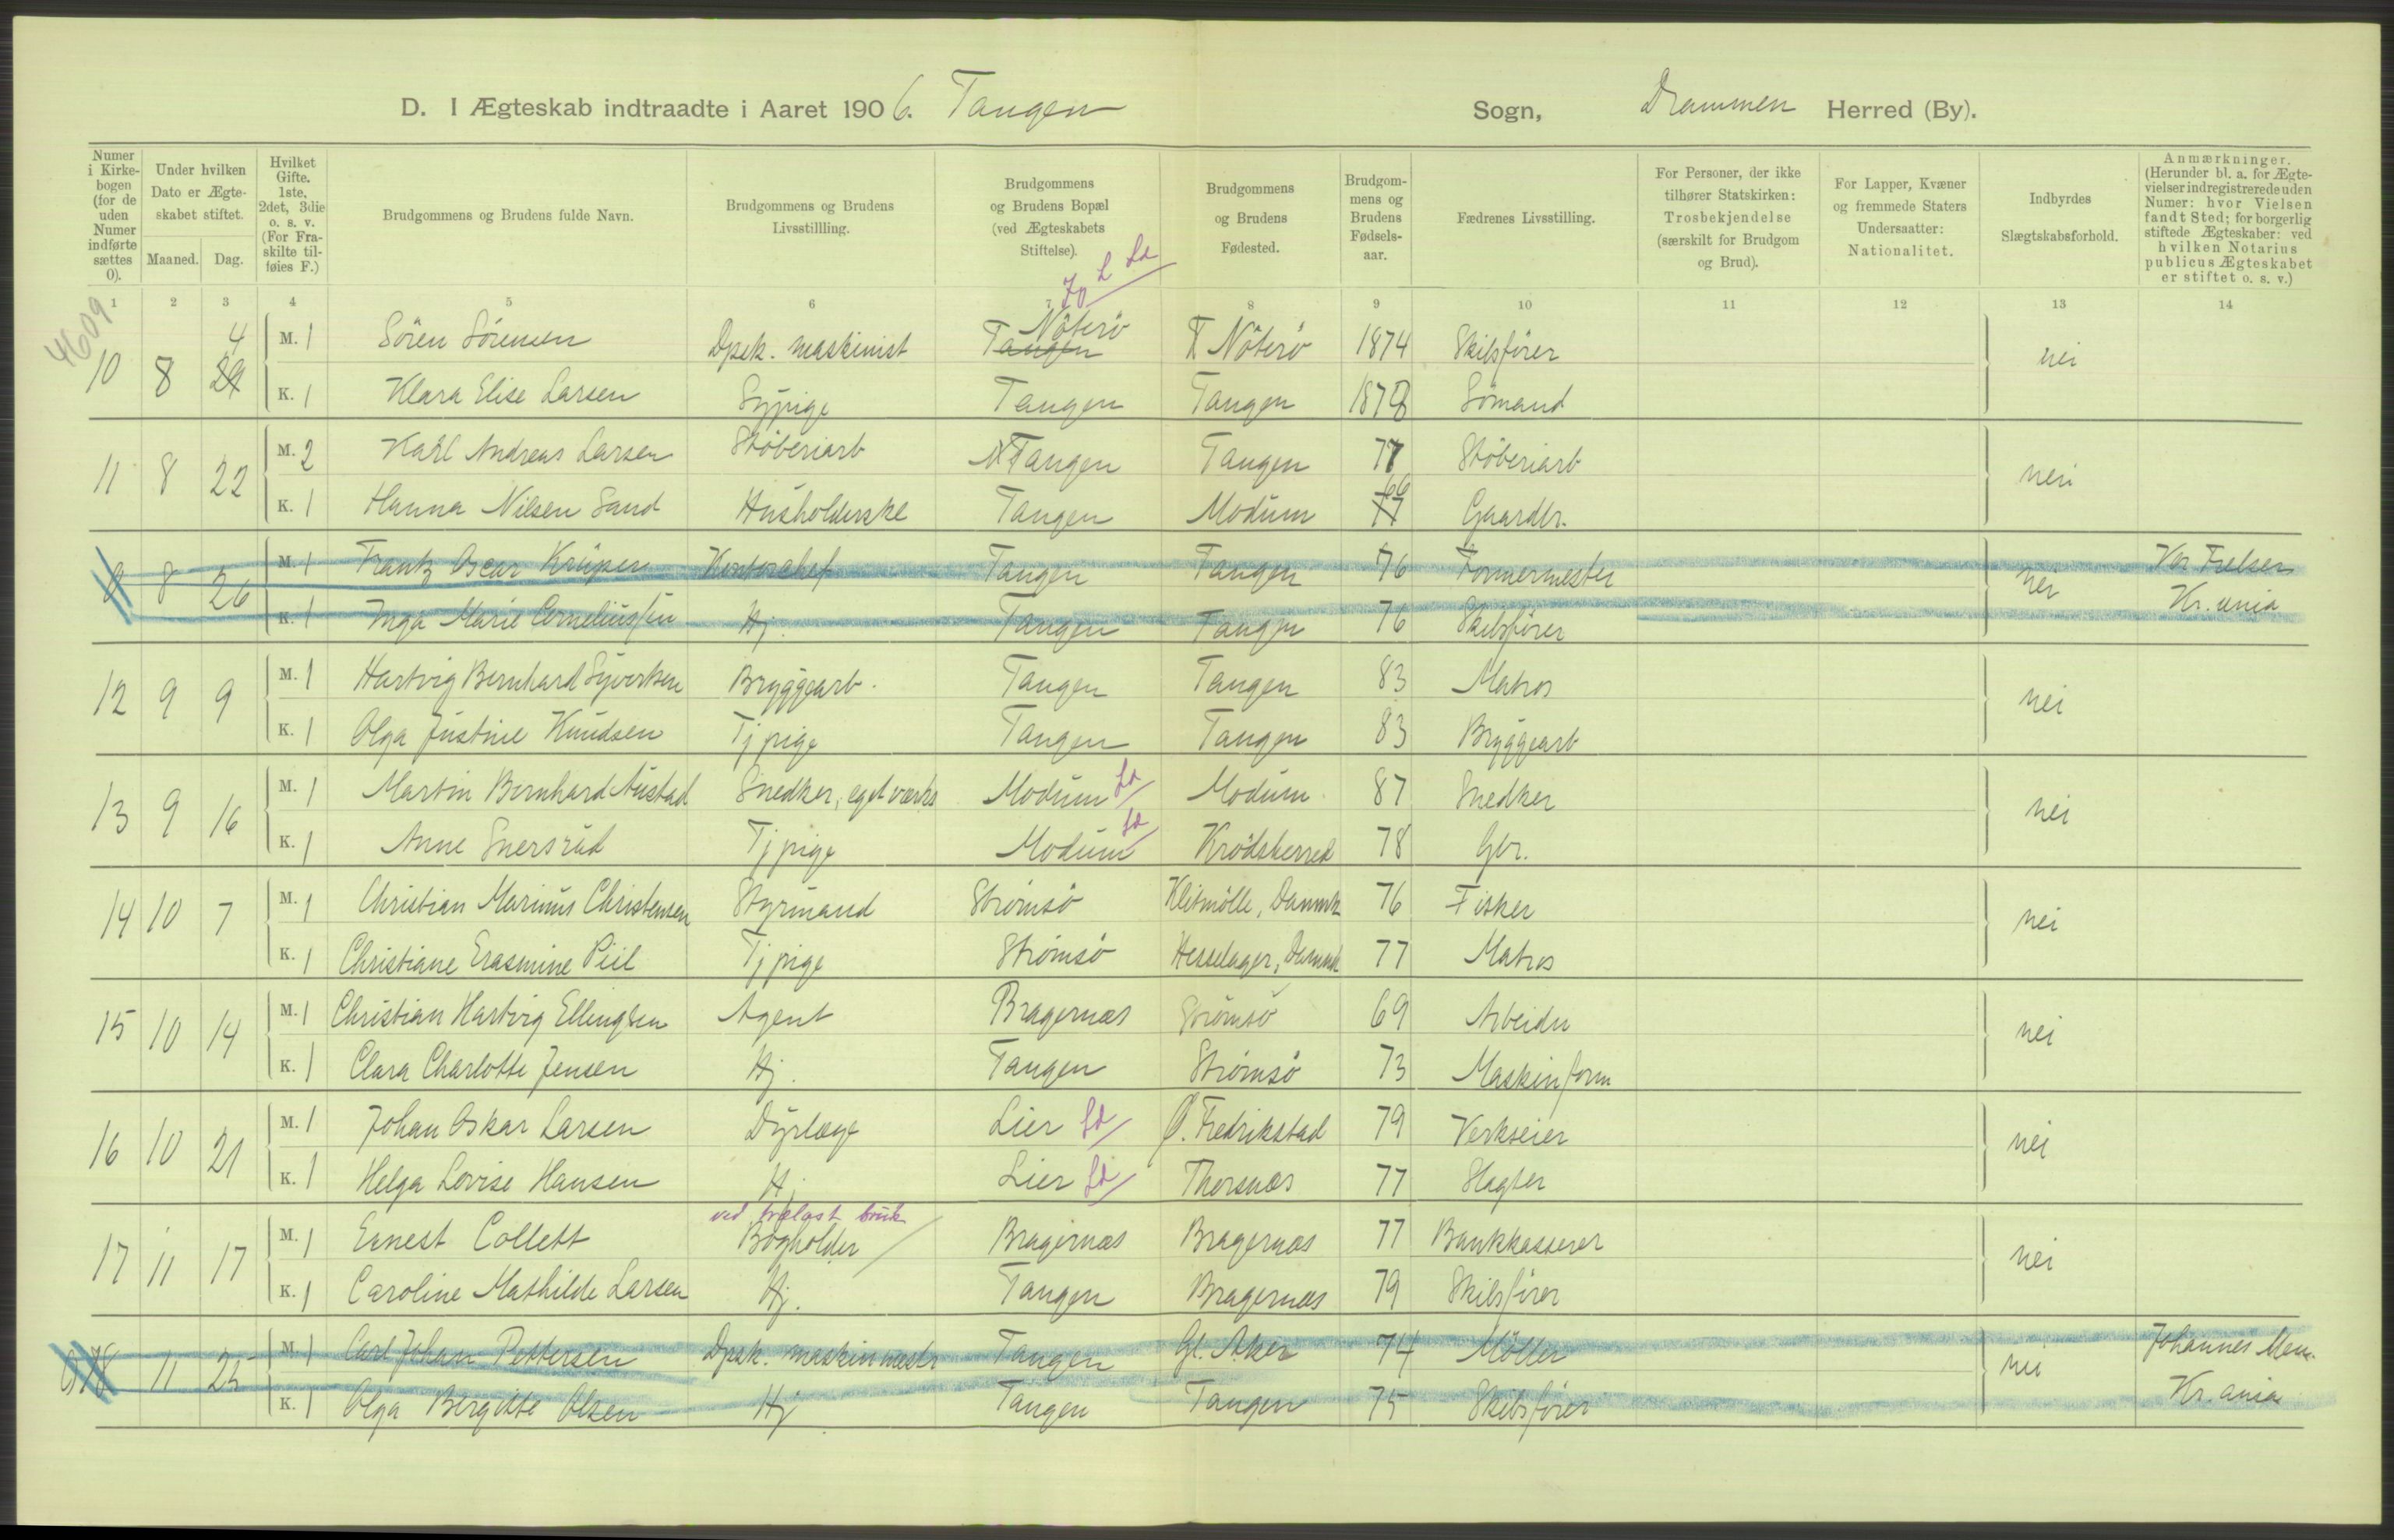 D. I Ægteskab indtraadte i Aaret 1906. Tangen Sogn, Drammen Herred (By).
Numer i Kirkebogen (for de uden Numer indførte sættes 0).
Under hvilken Dato er Ægteskabet stiftet.
Maaned. Dag.
Hvilket Gifte. 1ste, 2det, 3die o. s. v. (For Fraskilte tilføies F.)
Brudgommens og Brudens fulde Navn.
Brudgommens og Brudens Livsstillling.
Brudgommens og Brudens Bopæl (ved Ægteskabets Stiftelse).
Brudgommens og Brudens Fødested.
Brudgommens og Brudens Fødselsaar.
Fædrenes Livsstilling.
For Personer, der ikke tilhører Statskirken: Trosbekjendelse (særskilt for Brudgom og Brud).
For Lapper, Kvæner og fremmede Staters Undersaatter: Nationalitet.
Indbyrdes Slægtskabsforhold.
Anmærkninger. (Herunder bl. a. for Ægtevielser indregistrerede uden Numer: hvor Vielsen fandt Sted; for borgerlig stiftede Ægteskaber: ved hvilken Notarius publicus Ægteskabet er stiftet o. s. v.)
1 2 3 4 5 6 7 8 9 10 11 12 13 14
4609.
L Ld
10 8 29 4 M. 1 Søren Sørensen Dpsk. maskinist Tangen Nøterø Nøterø 1874 Skibsfører nei
K. 1 Klara Elise Larsen Sypige Tangen Tangen 1878 Sømand
11 8 22 M. 2 Karl Andreas Larsen Støberiarb Tangen Tangen 77 Støberiarb nei
K. 1 Hanna Nilsen Sand Husholderske Tangen Modum 77 66 Gaardbr.
0 8 26 M. 1 Frantz Oscar Krüper Kontorchef Tangen Tangen 76 Formermester nei Vor Frelser
K. 1 Inga Marie Corneliussen Hj. Tangen Tangen 76 Skibsfører Kr.ania
12 9 9 M. 1 Hartvig Bernhard Syvertsen Bryggearb. Tangen Tangen 83 Matros nei
K. 1 Olga Justine Knudsen Tjpige Tangen Tangen 83 Bryggearb
13 9 16 M. 1 Martin Bernhard Austad Snedker, eget værks Modum Ld Modum 87 Snedker nei
K. 1 Anne Snersrud Tjpige Modum Ld Krødsherred 78 Gbr.
14 10 7 M. 1 Christian Marinus Christensen Styrmand Strømsø Klitmølle, Danmk 76 Fisker nei
K. 1 Christiane Erasmine Piil Tjpige Strømsø Hesselager, Danmk 77 Matros
15 10 14 M. 1 Christian Hartvig Ellingsen Agent Bragernæs Strømsø 69 Arbeider nei
K. 1 Clara Charlotte Jensen Hj. Tangen Strømsø 73 Maskinform
16 10 21 M. 1 Johan Oskar Larsen Dyrlæge Lier Ld Ø. Fredrikstad 79 Verkseier nei
K. 1 Helga Lovise Hansen Hj. Lier Ld Thorsnæs 77 Slagter
ved trælast bruk
17 11 17 M. 1 Ernest Collett Bogholder Bragernæs Bragernæs 77 Bankkasserer nei
K. 1 Caroline Mathilde Larsen Hj. Tangen Bragernæs 79 Skibsfører
0 18 11 25 M. 1 Carl Johan Pettersen Dpsk. maskinmestr Tangen Gl. Aker 74 Møller nei Johannes Men.
K. 1 Olga Bergitte Olsen Hj Tangen Tangen 75 Skibsfører Kr.ania